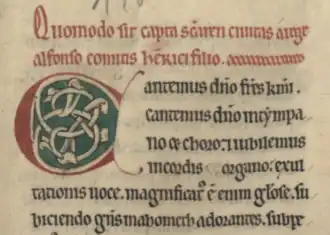 Quomodo sit capta sc̄aren ciuitas arege
alfonso comitis hērici filio.
Cantemus dn̄o frs̄ km̄i.
cantemus dn̄o intȳpa
no ⁊ choro: iubilemus
incordis ⁊ organo: exul
tationis uoce. magnificat᷒ ē enim gl̄ose. su
biciendo gn̄tis mahometh adorantes.